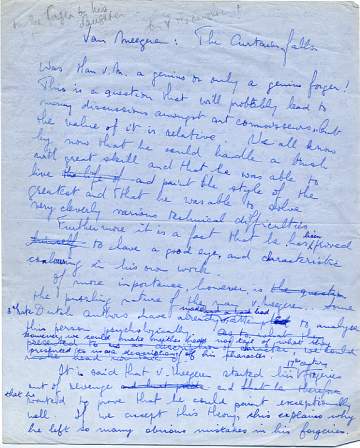 Van Meegeren: The Curtain falls
Was Han v. M. a genius or only a genius forger?
This is a question that will probably lead to
many discussions amongst art connoisseurs but
the value of it is relative. We all know
by now that he could handle a brush
with great skill and that he was able to
live and paint the style of the
greatest and that he was able to solve
very cleverly various technical difficulties.
Furthermore it is a fact that he has been proved
himself to have a good eye, and characteristic
colouring in his own work.
Of more importance, however, is the question
the puzzling nature of the man v. Meegeren. Some
Dutch authors have already attempted to analyse
this person psychologically.
however, we could
presented
more description of his character
It is said that v. Meegeren started his forgeries
out of revenge and that he therefore
wanted to prove that he could paint exceptionally
well. If we accept this theory, this explains why
he left so many obvious mistakes in his forgeries.